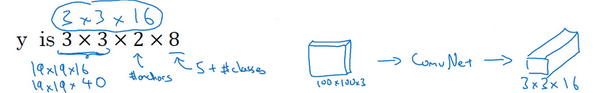 3 × 3 × 16
y is 3 × 3 × 2 × 8
19×19×16
19×19×40
#anchors
5 + #classes
100×100×3
→ ConvNet →
3×3×16